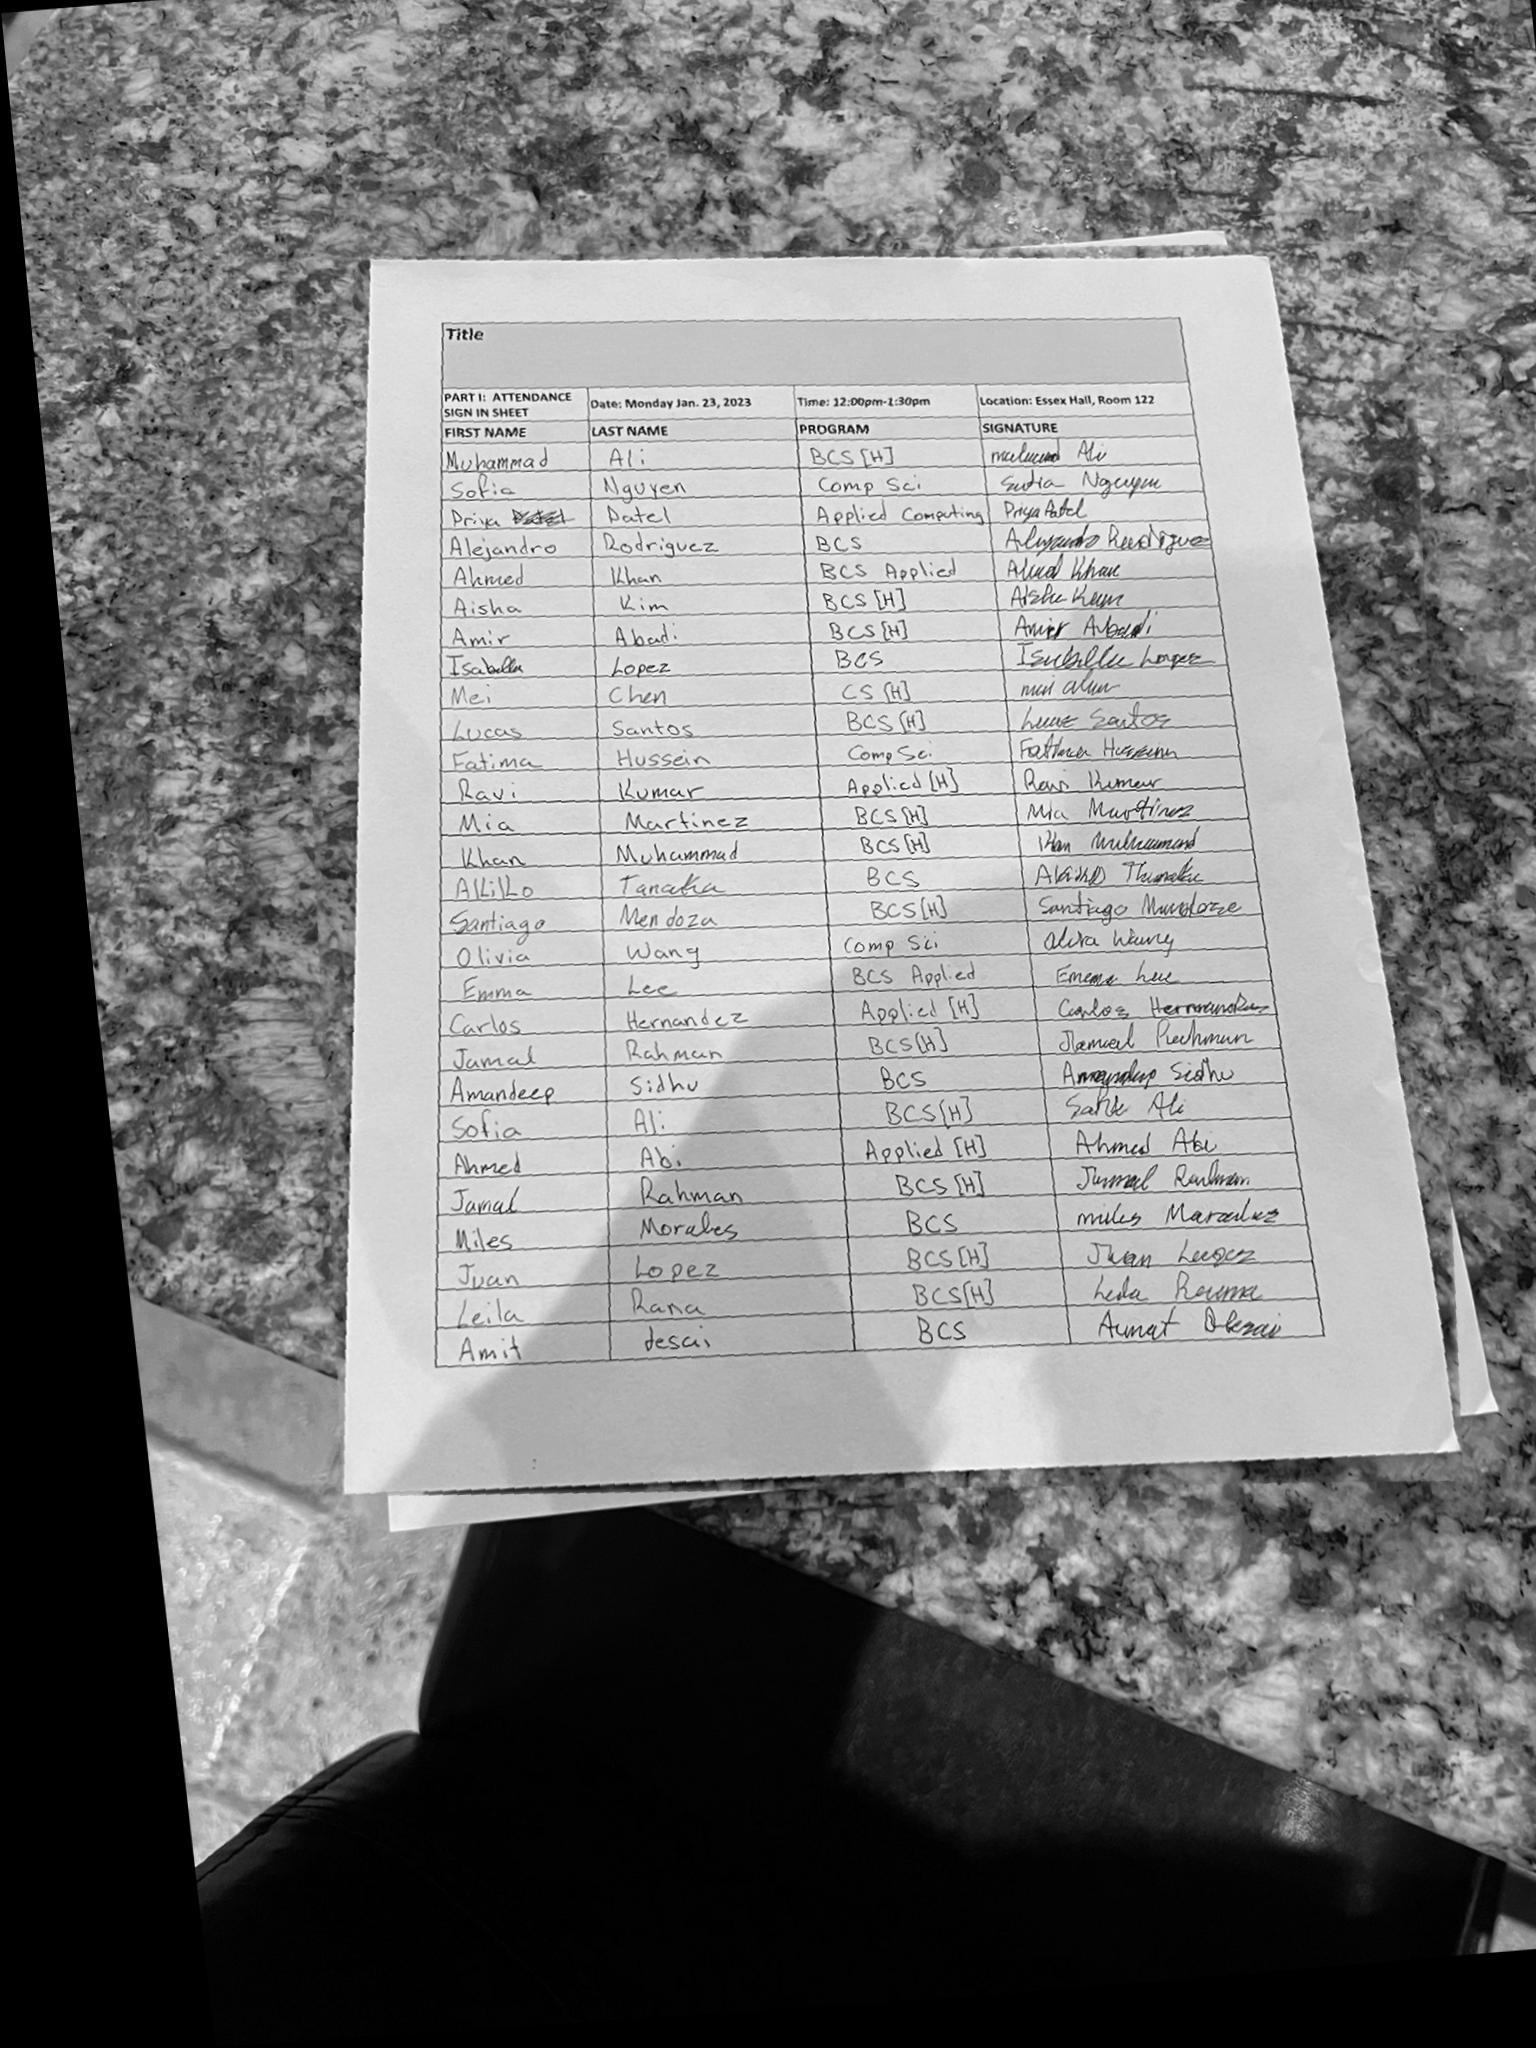 Title
PART I: ATTENDANCE SIGN IN SHEET Date: Monday Jan. 23, 2023 Time: 12:00pm-1:30pm Location: Essex Hall, Room 122
FIRST NAME LAST NAME PROGRAM SIGNATURE
Muhammad Ali BCS [H] Ali
Sofia Nguyen Comp Sci Nguyen
Priya Patel Applied Computing Priya Patel
Alejandro Rodriguez BCS Alejandro Rodriguez
Ahmed Khan BCS Applied Ahmed Khan
Aisha Kim BCS [H] Aisha Kim
Amir Abadi BCS [H] Amir Abadi
Isabella Lopez BCS Isabella Lopez
Mei Chen CS [H] mei chen
Lucas Santos BCS [H] Lucas Santos
Fatima Hussein Comp Sci Fatima Hussein
Ravi Kumar Applied [H] Ravi Kumar
Mia Martinez BCS [H] Mia Martinez
Khan Muhammad BCS [H] Khan Muhammad
Akiko Tanaka BCS
Santiago Mendoza BCS [H] Santiago Mendoza
Olivia Wang Comp Sci Wang
Emma Lee BCS Applied Emma Lee
Carlos Hernandez Applied [H] Carlos Hernandez
Jamal Rahman BCS [H] Jamal Rahman
Amandeep Sidhu BCS Amandeep Sidhu
Sofia Ali BCS [H] Ali
Ahmed Abi Applied [H] Ahmed Abi
Jamal Rahman BCS [H] Jamal Rahman
Miles Morales BCS miles Morales
Juan Lopez BCS [H] Juan Lopez
Leila Rana BCS [H] Leila
Amit desai BCS